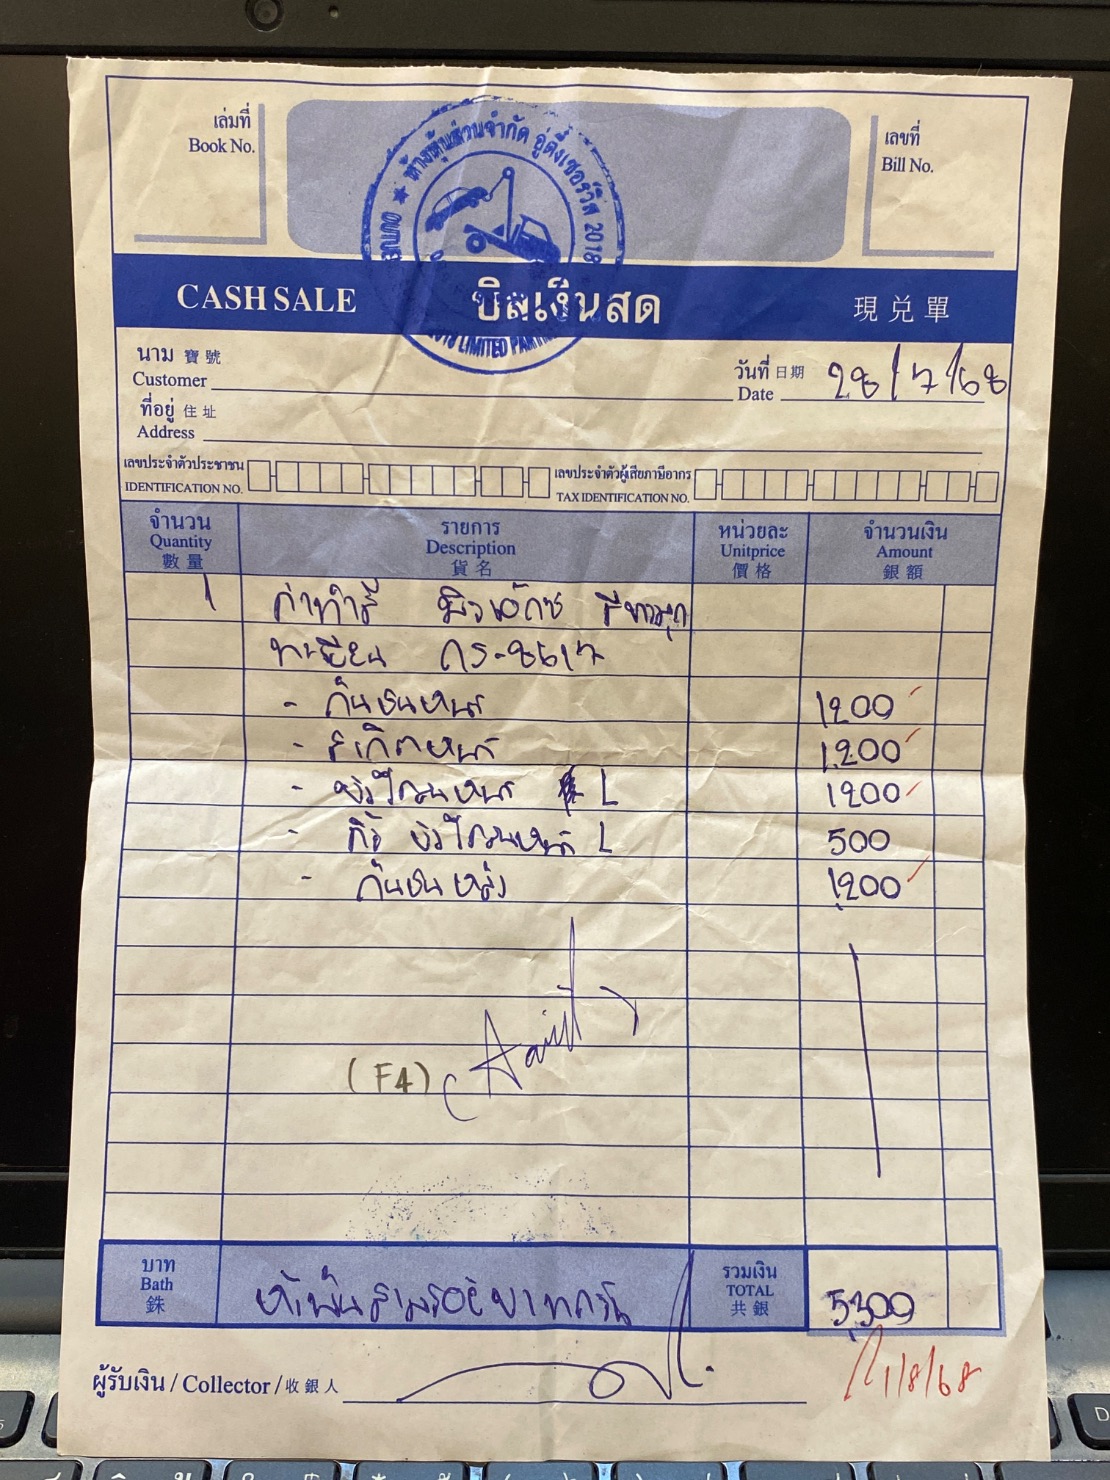 เล่มที่
Book No.
เลขที่
Bill No.
★ ห้างหุ้นส่วนจำกัด อู่ตึ๋งเซอร์วิส 2018
2018 LIMITED
CASH SALE บิลเงินสด 現兌單
นาม 寶號
Customer
วันที่ 日期
Date 28/7/68
ที่อยู่ 住址
Address
เลขประจำตัวประชาชน
IDENTIFICATION NO.
เลขประจำตัวผู้เสียภาษีอากร
TAX IDENTIFICATION NO.
จำนวน รายการ หน่วยละ จำนวนเงิน
Quantity Description Unitprice Amount
數量 貨名 價格 銀額
1 ค่าทำสี มิวเอ็กซ สีขาวมุก
ทะเบียน กร-8617
- กันชนหน้า 1200
- สเกิตหน้า 1,200
- บังโคลนหน้า L 1200
- คิ้ว บังโคลนหน้า L 500
- กันชนหลัง 1200
(F4)
บาท
Bath
銖
ห้าพันสามร้อยบาทถ้วน
รวมเงิน
TOTAL
共銀
5300
ผู้รับเงิน / Collector / 收銀人
1/8/68